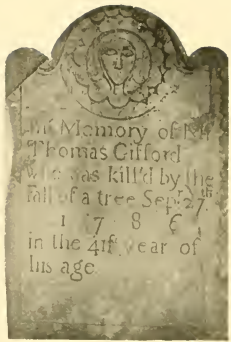 In Memory of Mr
Thomas Gifford
who was kill'd by the
Fall of a tree Sepr. 27th
1786
in the 41st year of
his age.